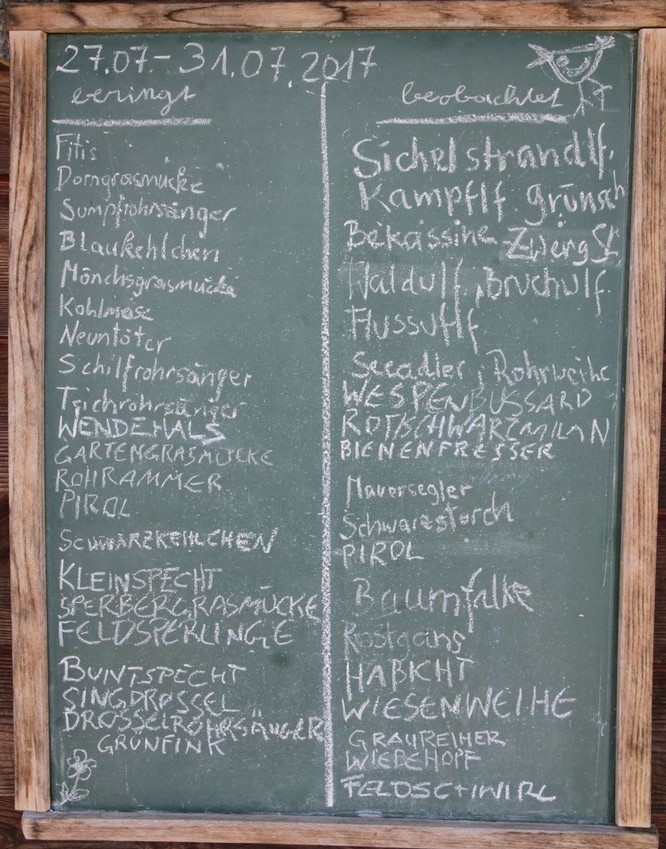 27.07.-31.07.2017
beringt
Fitis
Dorngrasmücke
Sumpfrohrsänger
Blaukehlchen
Mönchsgrasmücke
Kohlmeise
Neuntöter
Schilfrohrsänger
Teichrohrsänger
WENDEHALS
GARTENGRASMÜCKE
ROHRAMMER
PIROL
SCHWARZKEHLCHEN
KLEINSPECHT
SPERBERGRASMÜCKE
FELDSPERLINGE
BUNTSPECHT
SINGDROSSEL
DROSSELROHRSÄNGER
GRÜNFINK
beobachtet
Sichelstrandlf.
Kampflf Grünsch
Bekassine ZwergSt
Waldwlf, Bruchwlf.
Flussuflf
Seeadler, Rohrweihe
WESPENBUSSARD
ROT/SCHWARZMILAN
BIENENFRESSER
Mauersegler
Schwarzstorch
PIROL
Baumfalke
Rostgans
HABICHT
WIESENWEIHE
GRAUREIHER
WIEDEHOPF
FELDSCHWIRL